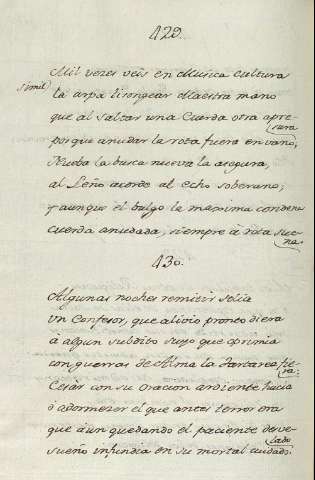 429.
Mil vezes veis en Musica cultura
simil
la arpa lisongear Maestra mano
que al saltar una Cuerda otra apresura
porque anudar la rota fuera en vano;
Nueba la busca nueva la asegura,
al Leño acorde al echo soberano;
y aunque el bulgo la maxima condena
cuerda anudada, siempre à rota suena.
430.
Algunas noches remitir solia
un Confesor, que alivio promto diera
à algun subdito suyo que oprimia
con guerras de Alma la tartarea fiera:
Cesar con su oracion ardiente hacia
ò adormecer el que antes terror era
que aun quedando el paciente desvelado
sueño infundia en su mortal cuidado.